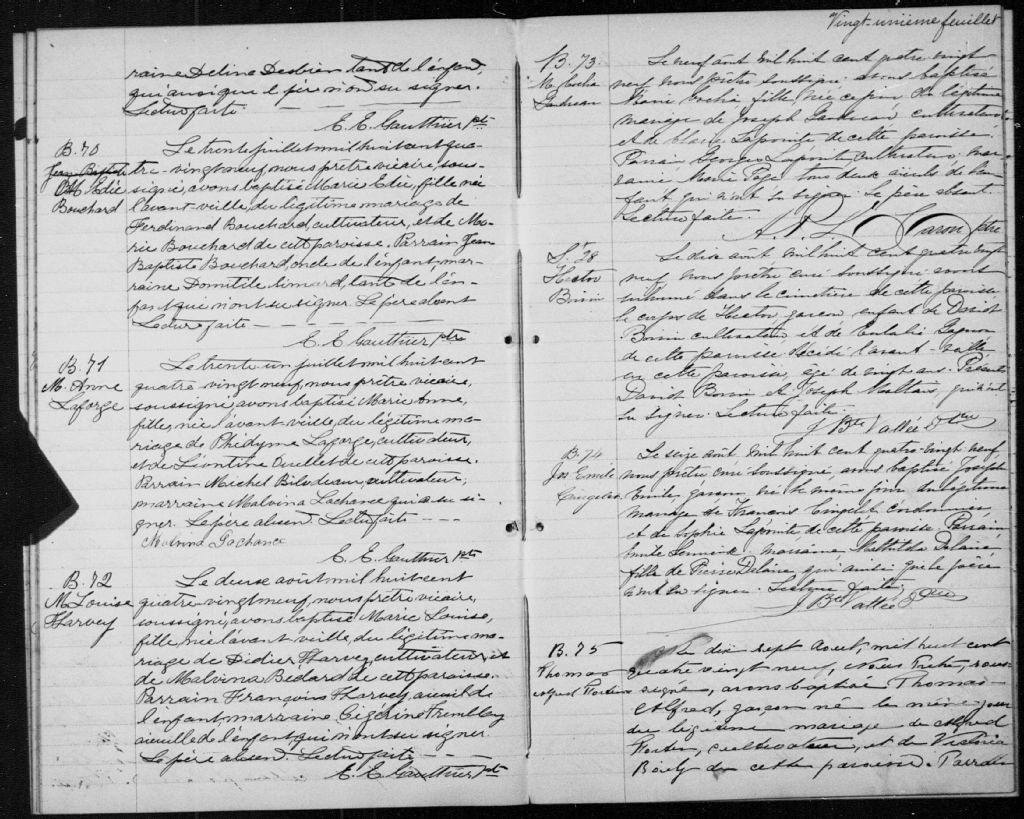 Vingt-unième feuillet
raine Deline Desbien tante de l'enfant,
qui ainsi que le père n'ont su signer.
Lecture faite
E. E. Gauthier ptre
B. 70
Jean Baptiste
M. Edié
Bouchard
Le trente juillet mil huit cent qua-
tre-vingt neuf, nous prêtre vicaire sous-
signé, avons baptisé Marie Edie, fille née
l'avant-veille, du légitime mariage de
Ferdinand Bouchard, cultivateur, et de Ma-
rie Bouchard de cette paroisse. Parrain Jean
Baptiste Bouchard, oncle de l'enfant, mar-
raine Domitile Simard, tante de l'en-
fant qui n'ont su signer. Le père absent
Lecture faite
E. E. Gauthier, ptre
B. 71
M. Anne
Laforge
Le trente un juillet mil huit cent
quatre vingt neuf, nous prêtre vicaire,
soussigné avons baptisé Marie Anne,
fille, née l'avant veille, du légitime ma-
riage de Phédyme Laforge, cultivateur,
et de Léontine Ouellet de cette paroisse.
Parrain Michel Bilodeau, cultivateur,
marraine Malvina Lachance qui a su si-
gner. Le père absent. Lecture faite
Malvina Lachance
E. E. Gauthier ptre
B. 72
M. Louise
Harvey
Le deux août mil huit cent
quatre vingt neuf, nous prêtre vicaire,
soussigné, avons baptisé Marie Louise,
fille, née l'avant veille, du légitime ma-
riage de Didier Harvey, cultivateur, et
de Malvina Bédard de cette paroisse.
Parrain François Harvey, aïeul de
l'enfant, marraine Tremblay
aïeulle de l'enfant, qui n'ont su signer
Le père absent. Lecture faite
E. E. Gauthier ptre
B. 73.
M.
Le neuf août mil huit cent quatre vingt
neuf nous prêtre soussigné avons baptisé
Marie fille, née ce jour du légitime
mariage de Joseph cultivateur
et de Lapointe de cette paroisse.
Parrain Georges Lapointe cultivateur, mar-
raine Marie tous deux aïeuls de l'en-
fant qui n'ont su signer. Le père absent.
Lecture faite.
Caron ptre
S. 28
Hector
Boivin
Le dix août mil huit cent quatre vingt
neuf, nous prêtre curé soussigné avons
inhumé dans le cimetière de cette paroisse
le corps de Hector, garçon, enfant de David
Boivin cultivateur et de Gagnon
de cette paroisse décédé l'avant-veille
en cette paroisse, âgé de vingt ans. Présents
David Boivin et Joseph qui n'ont
su signer. Lecture faite.
J Bte Vallée Ptre
B. 74
Jos Emile
Le seize août mil huit cent quatre-vingt neuf,
nous prêtre curé soussigné, avons baptisé Joseph
Emile, garçon, né le même jour du légitime
mariage de François cordonnier,
et de Sophie Lapointe de cette paroisse. Parrain
marraine, Mathilda Delaire,
fille de Pierre Delaire, qui ainsi que le père
n'ont su signer. Lecture faite
J Bte Vallée Ptre
B. 75
Thomas
Alfred
Le dix-sept Août, mil huit cent
quatre vingt neuf, Nous Prêtre, sous-
signé, avons baptisé Thomas-
Alfred, garçon né le même jour
du légitime mariage de Alfred
cultivateur, et de Victoria
Boily de cette paroisse. Parrain